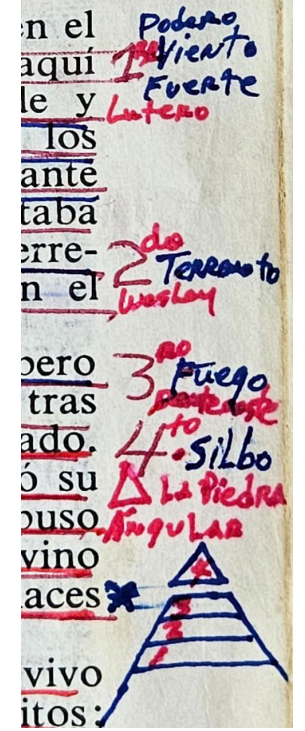 n el
aquí
le y
los
ante
taba
erre-
n el
pero
tras
ado.
ó su
puso
vino
aces
vivo
itos:
Poderoso
1ro Viento
Fuerte
Lutero
2do
Terremoto
Wesley
3ro
Fuego
Pentecoste
4to
Silbo
La Piedra
Angular
4
3
2
1